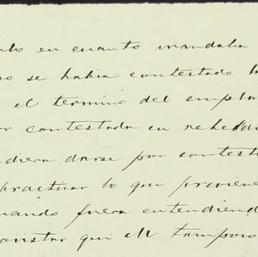 en cuanto mandaba
se habia contestado
el termino del empla
contestada en rebeldi
diera darse por contest
practicar lo que previene
uando fuera entendiend
constar que ell tampoco